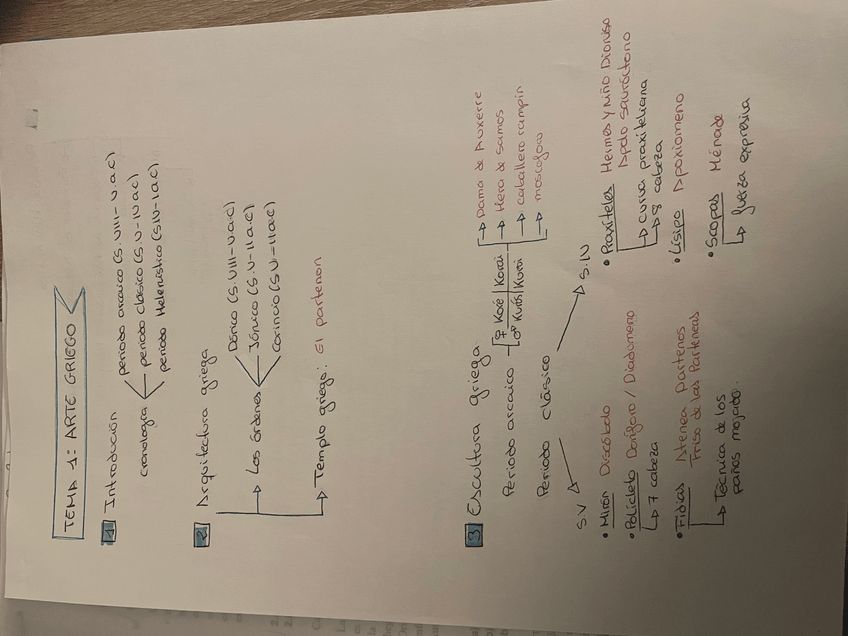 TEMA 1: ARTE GRIEGO
1 Introducción
cronología
periodo arcaico (S.VIII-V.a.C)
periodo clásico (S.V-IV a.C)
periodo Helenístico (S.IV-I a.C)
2 Arquitectura griega
Los órdenes
Dórico (S.VIII-V.a.C)
Jónico (S.V-II a.C)
Corincio (S.VI-II a.C)
Templo griego: El partenon
3 Escultura griega
Periodo arcaico
♀ Koré | Korai
♂ Kurós | Kuroi
Dama de Auxerre
Hera de Samos
caballero rampin
moscoforo
Periodo clásico
S.V
• Mirón Discóbolo
• Policleto Doríforo / Diadumeno
7 cabeza
• Fidias Atenea partenos
Friso de las Parteneas
Técnica de los
paños mojado.
S.IV
• Praxíteles Hermes y niño Dioniso
Apolo sauróctono
curva praxiteliana
8 cabeza
• Lisipo Apoxiomeno
• Scopas Ménade
fuerza expresiva